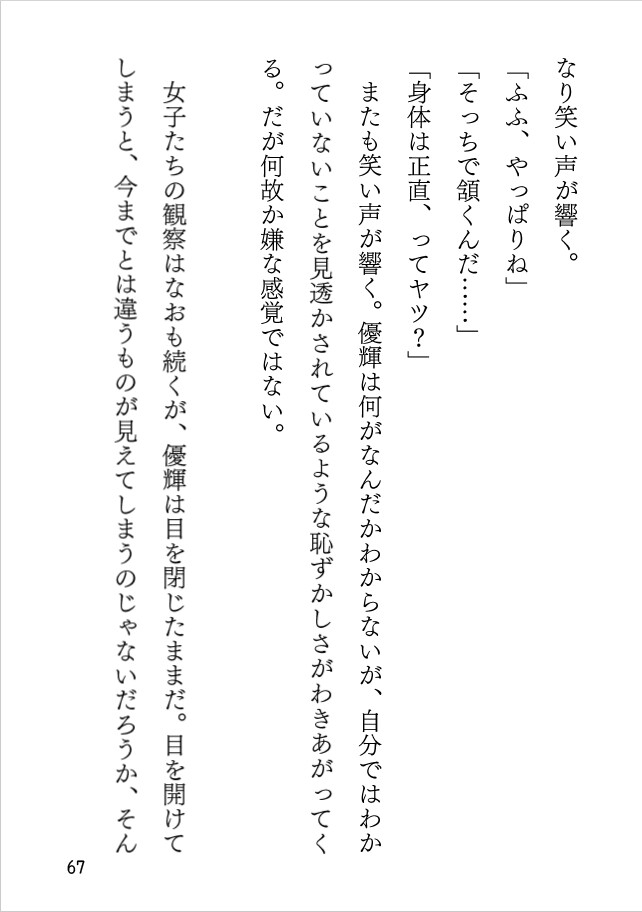 なり笑い声が響く。
「ふふ、やっぱりね」
「そっちで頷くんだ……」
「身体は正直、ってヤツ？」
　またも笑い声が響く。優輝は何がなんだかわからないが、自分ではわか
っていないことを見透かされているような恥ずかしさがわきあがってく
る。だが何故か嫌な感覚ではない。
　女子たちの観察はなおも続くが、優輝は目を閉じたままだ。目を開けて
しまうと、今までとは違うものが見えてしまうのじゃないだろうか、そん
67